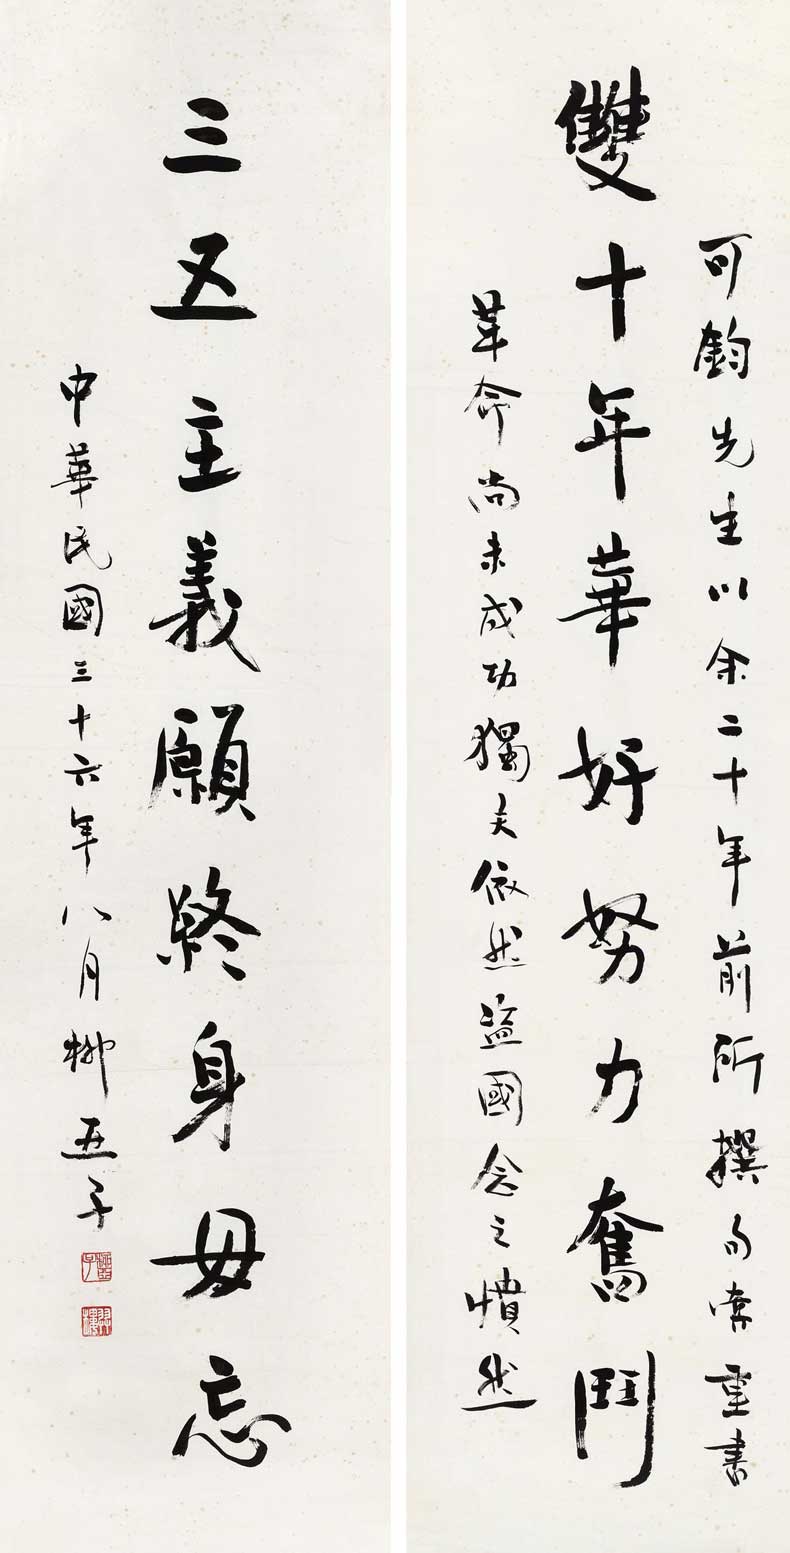 可鈞先生以余二十年前所撰句索重書
雙十年華好努力奮鬥
革命尚未成功獨夫依然盜國念之憤然
三五主義願終身毋忘
中華民國三十六年八月柳亞子
柳亞子
羿樓